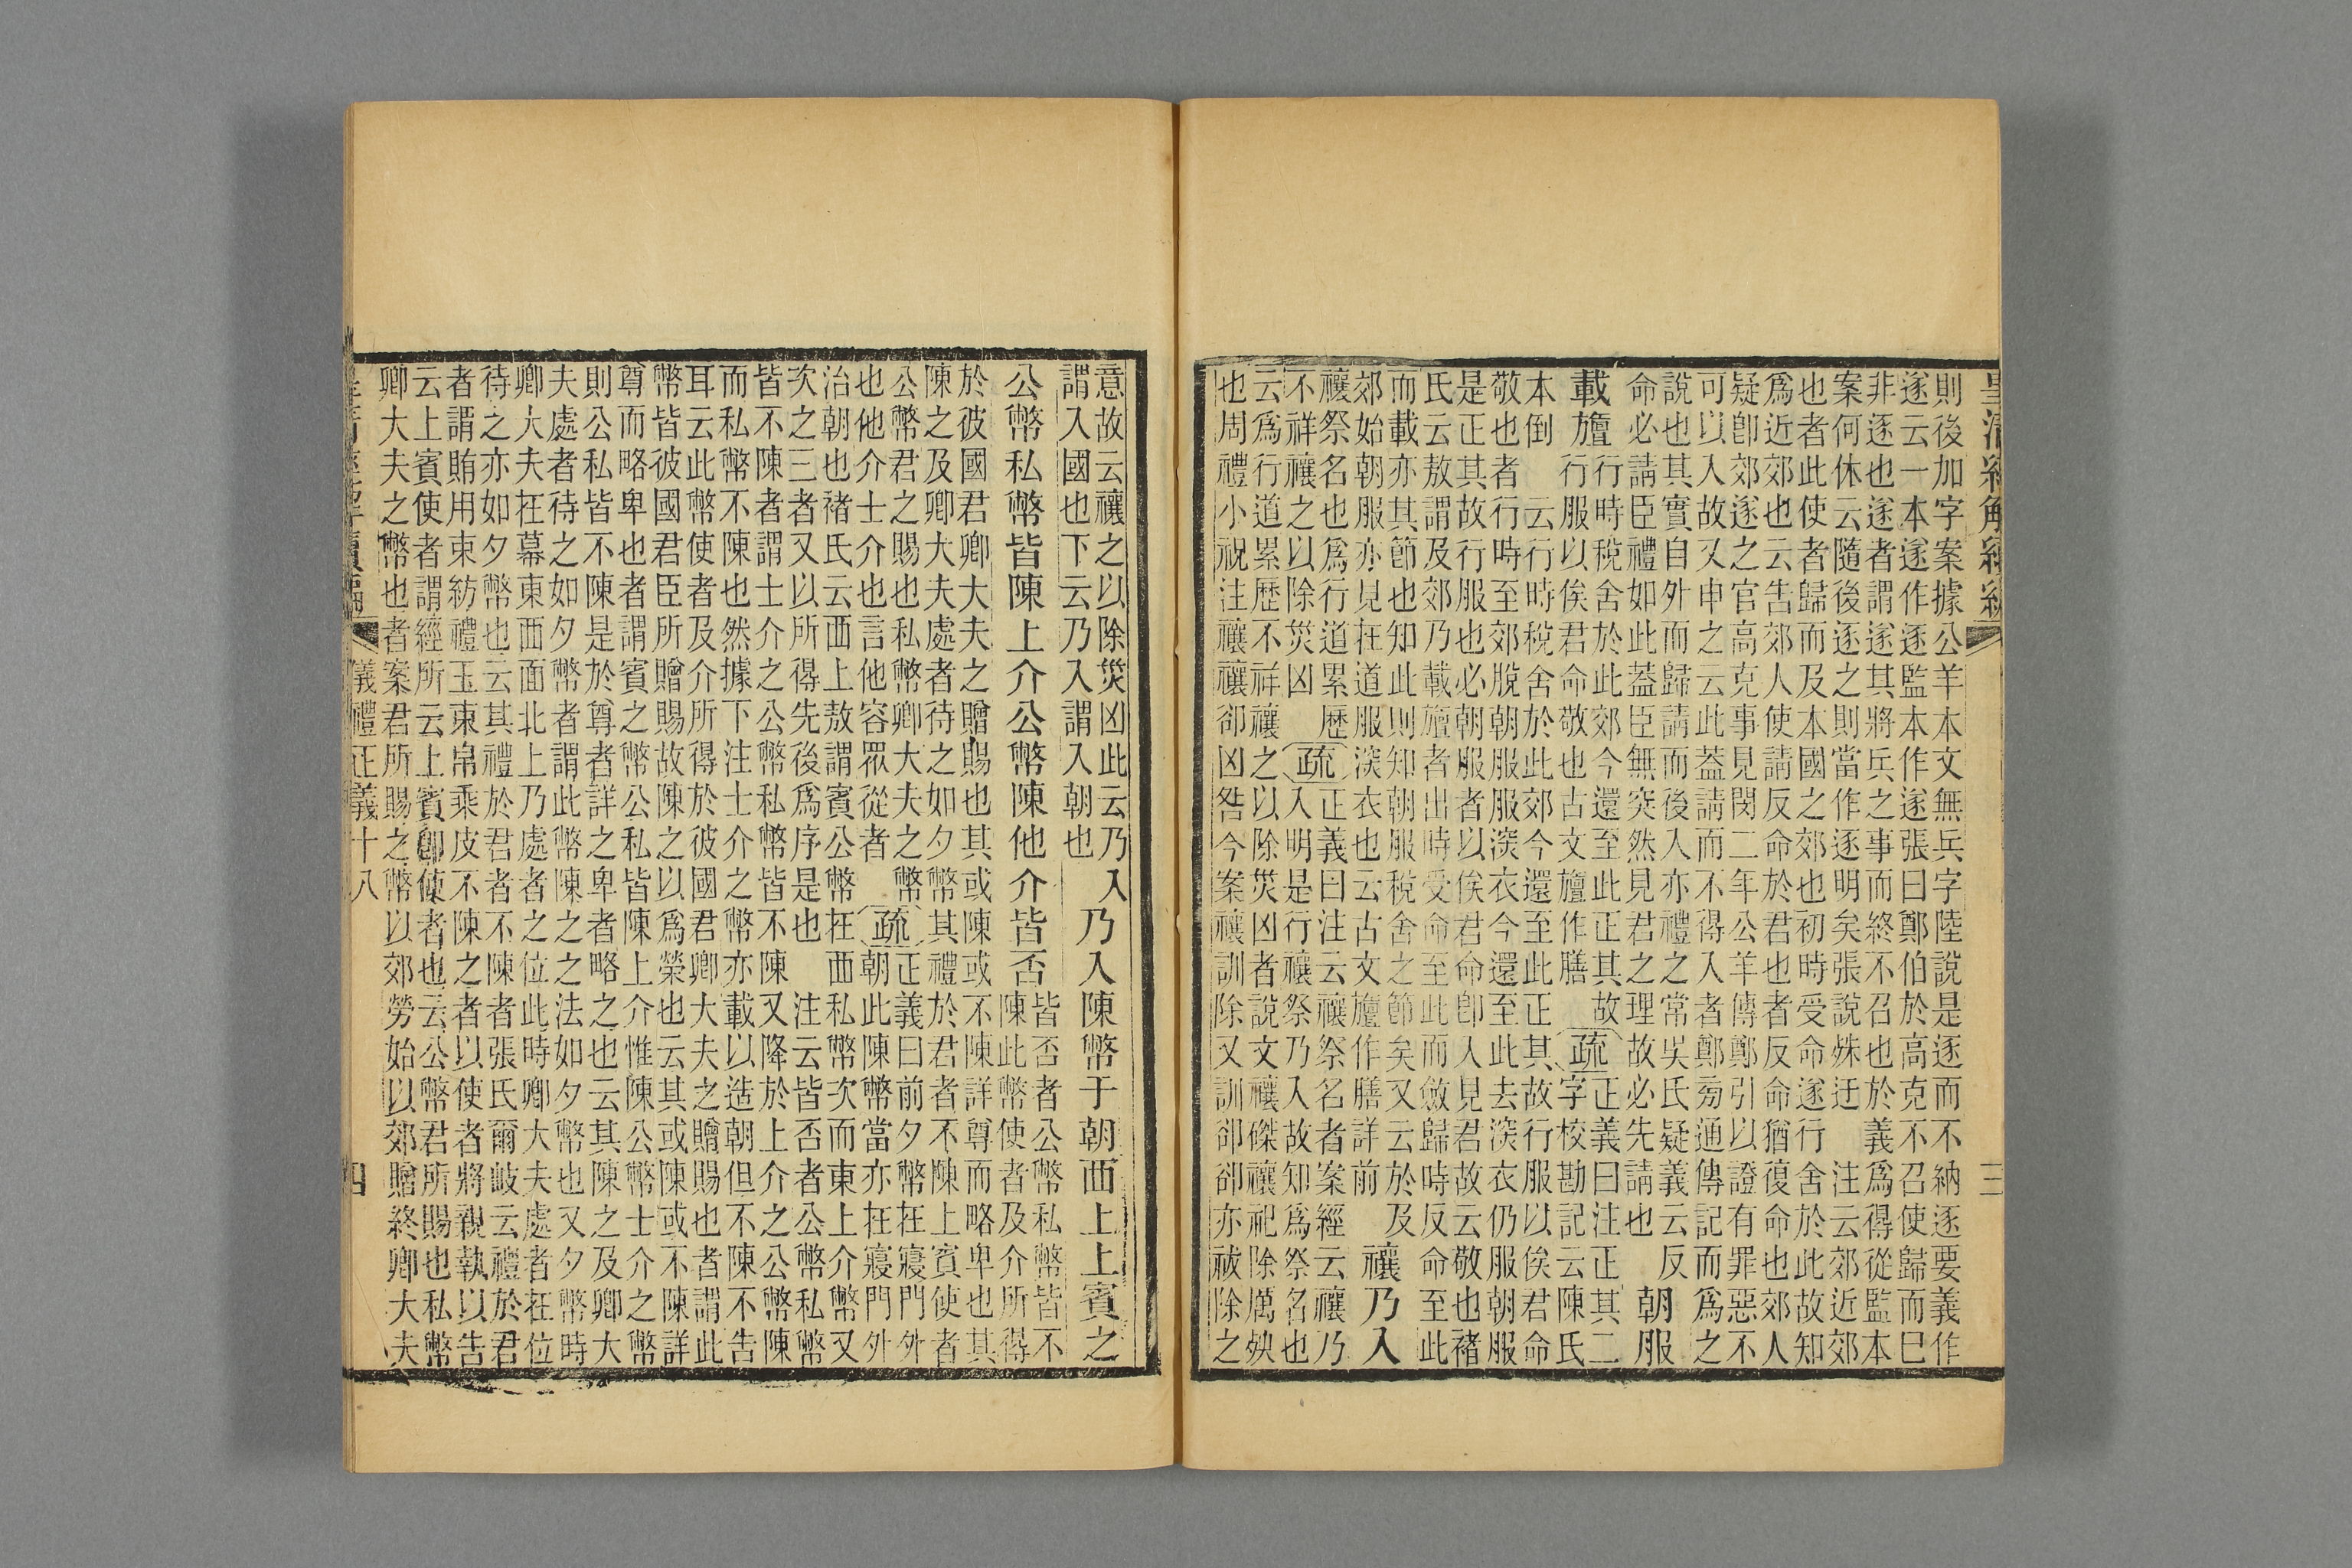 皇清經解續編 三
則後加字案據公羊本文無兵字陸說是逐而不納逐要義作
遂云一本遂作逐監本作遂張曰鄭伯於高克不召使歸而巳
非逐也遂者謂遂其將兵之事而終不召也於義爲得從監本
案何休云隨後逐之則當作逐明矣張說姝迂 注云郊近郊
也者此使者歸而及本國之郊也初時受命遂行舍於此故知
爲近郊也云告郊人使請反命於君也者反命猶復命也郊人
疑卽郊遂之官高克事見閔二年公羊傳鄭引以證有罪惡不
可以入故又申之云此蓋請而不得入者鄭旁通傳記而爲之
說也其實自外而歸請而後入亦禮之常吳氏疑義云反
命必請臣禮如此蓋臣無突然見君之理故必先請也
朝服
載旜
行時稅舍於此郊今還至此正其故
行服以俟君命敬也古文旜作膳
疏
正義曰注正其二
字校勘記云陳氏
本倒 云行時稅舍於此郊今還至此正其故行服以俟君命
敬也者行時至郊脫朝服服深衣今還至此去深衣仍服朝服
是正其故行服也必朝服者以俟君命卽入見君故云敬也褚
氏云敖謂及郊乃載旜者出時受命至此而斂歸時反命至此
而載亦其節也知此則知朝服稅舍之節矣又云於及
郊始朝服亦見在道服深衣也云古文旜作膳詳前
禳乃入
禳祭名也爲行道累歷
不祥禳之以除災凶
疏
正義曰注云禳祭名者案經云禳乃
入明是行禳祭乃入故知爲祭名也
云爲行道累歷不祥禳之以除災凶者說文禳磔禳祀除厲殃
也周禮小祝注禳禳卻凶咎今案禳訓除又訓卻卻亦祓除之
意故云禳之以除災凶此云乃入
謂入國也下云乃入謂入朝也
乃入陳幣于朝西上上賓之
公幣私幣皆陳上介公幣陳他介皆否
皆否者公幣私幣皆不
陳此幣使者及介所得
於彼國君卿大夫之贈賜也其或陳或不陳詳尊而略卑也其
陳之及卿大夫處者待之如夕幣其禮於君者不陳上賓使者
公幣君之賜也私幣卿大夫之幣
也他介士介也言他容眾從者
疏
正義曰前夕幣在寢門外
朝此陳幣當亦在寢門外
治朝也褚氏云西上敖謂賓公幣在西私幣次而東上介幣又
次之三者又以所得先後爲序是也 注云皆否者公幣私幣
皆不陳者謂士介之公幣私幣皆不陳又降於上介之公幣陳
而私幣不陳也然據下注士介之幣亦載以造朝但不陳不告
耳云此幣使者及介所得於彼國君卿大夫之贈賜也者謂此
幣皆彼國君臣所贈賜故陳之以爲榮也云其或陳或不陳詳
尊而略卑也者謂賓之幣公私皆陳上介惟陳公幣士介之幣
則公私皆不陳是於尊者詳之卑者略之也云其陳之及卿大
夫處者待之如夕幣者謂此幣陳之之法如夕幣也又夕幣時
卿大夫在幕東西面北上乃處者之位此時卿大夫處者在位
待之亦如夕幣也云其禮於君者不陳者張氏爾岐云禮於君
者謂賄用束紡禮玉束帛乘皮不陳之者以使者將親執以告
云上賓使者謂經所云上賓卽使者也云公幣君所賜也私幣
卿大夫之幣也者案君所賜之幣以郊勞始以郊贈終卿大夫
皇清經解續編 儀禮正義十八 四